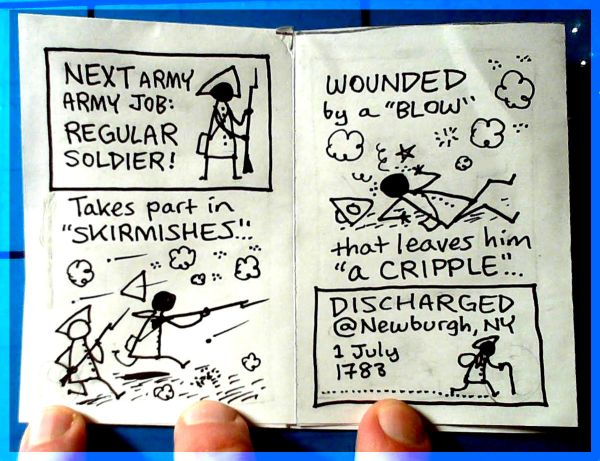 NEXT ARMY
ARMY JOB:
REGULAR
SOLDIER!
Takes part in
"SKIRMISHES"...
WOUNDED
by a "BLOW"
that leaves him
"a CRIPPLE"...
DISCHARGED
@Newburgh, NY
1 July
1783